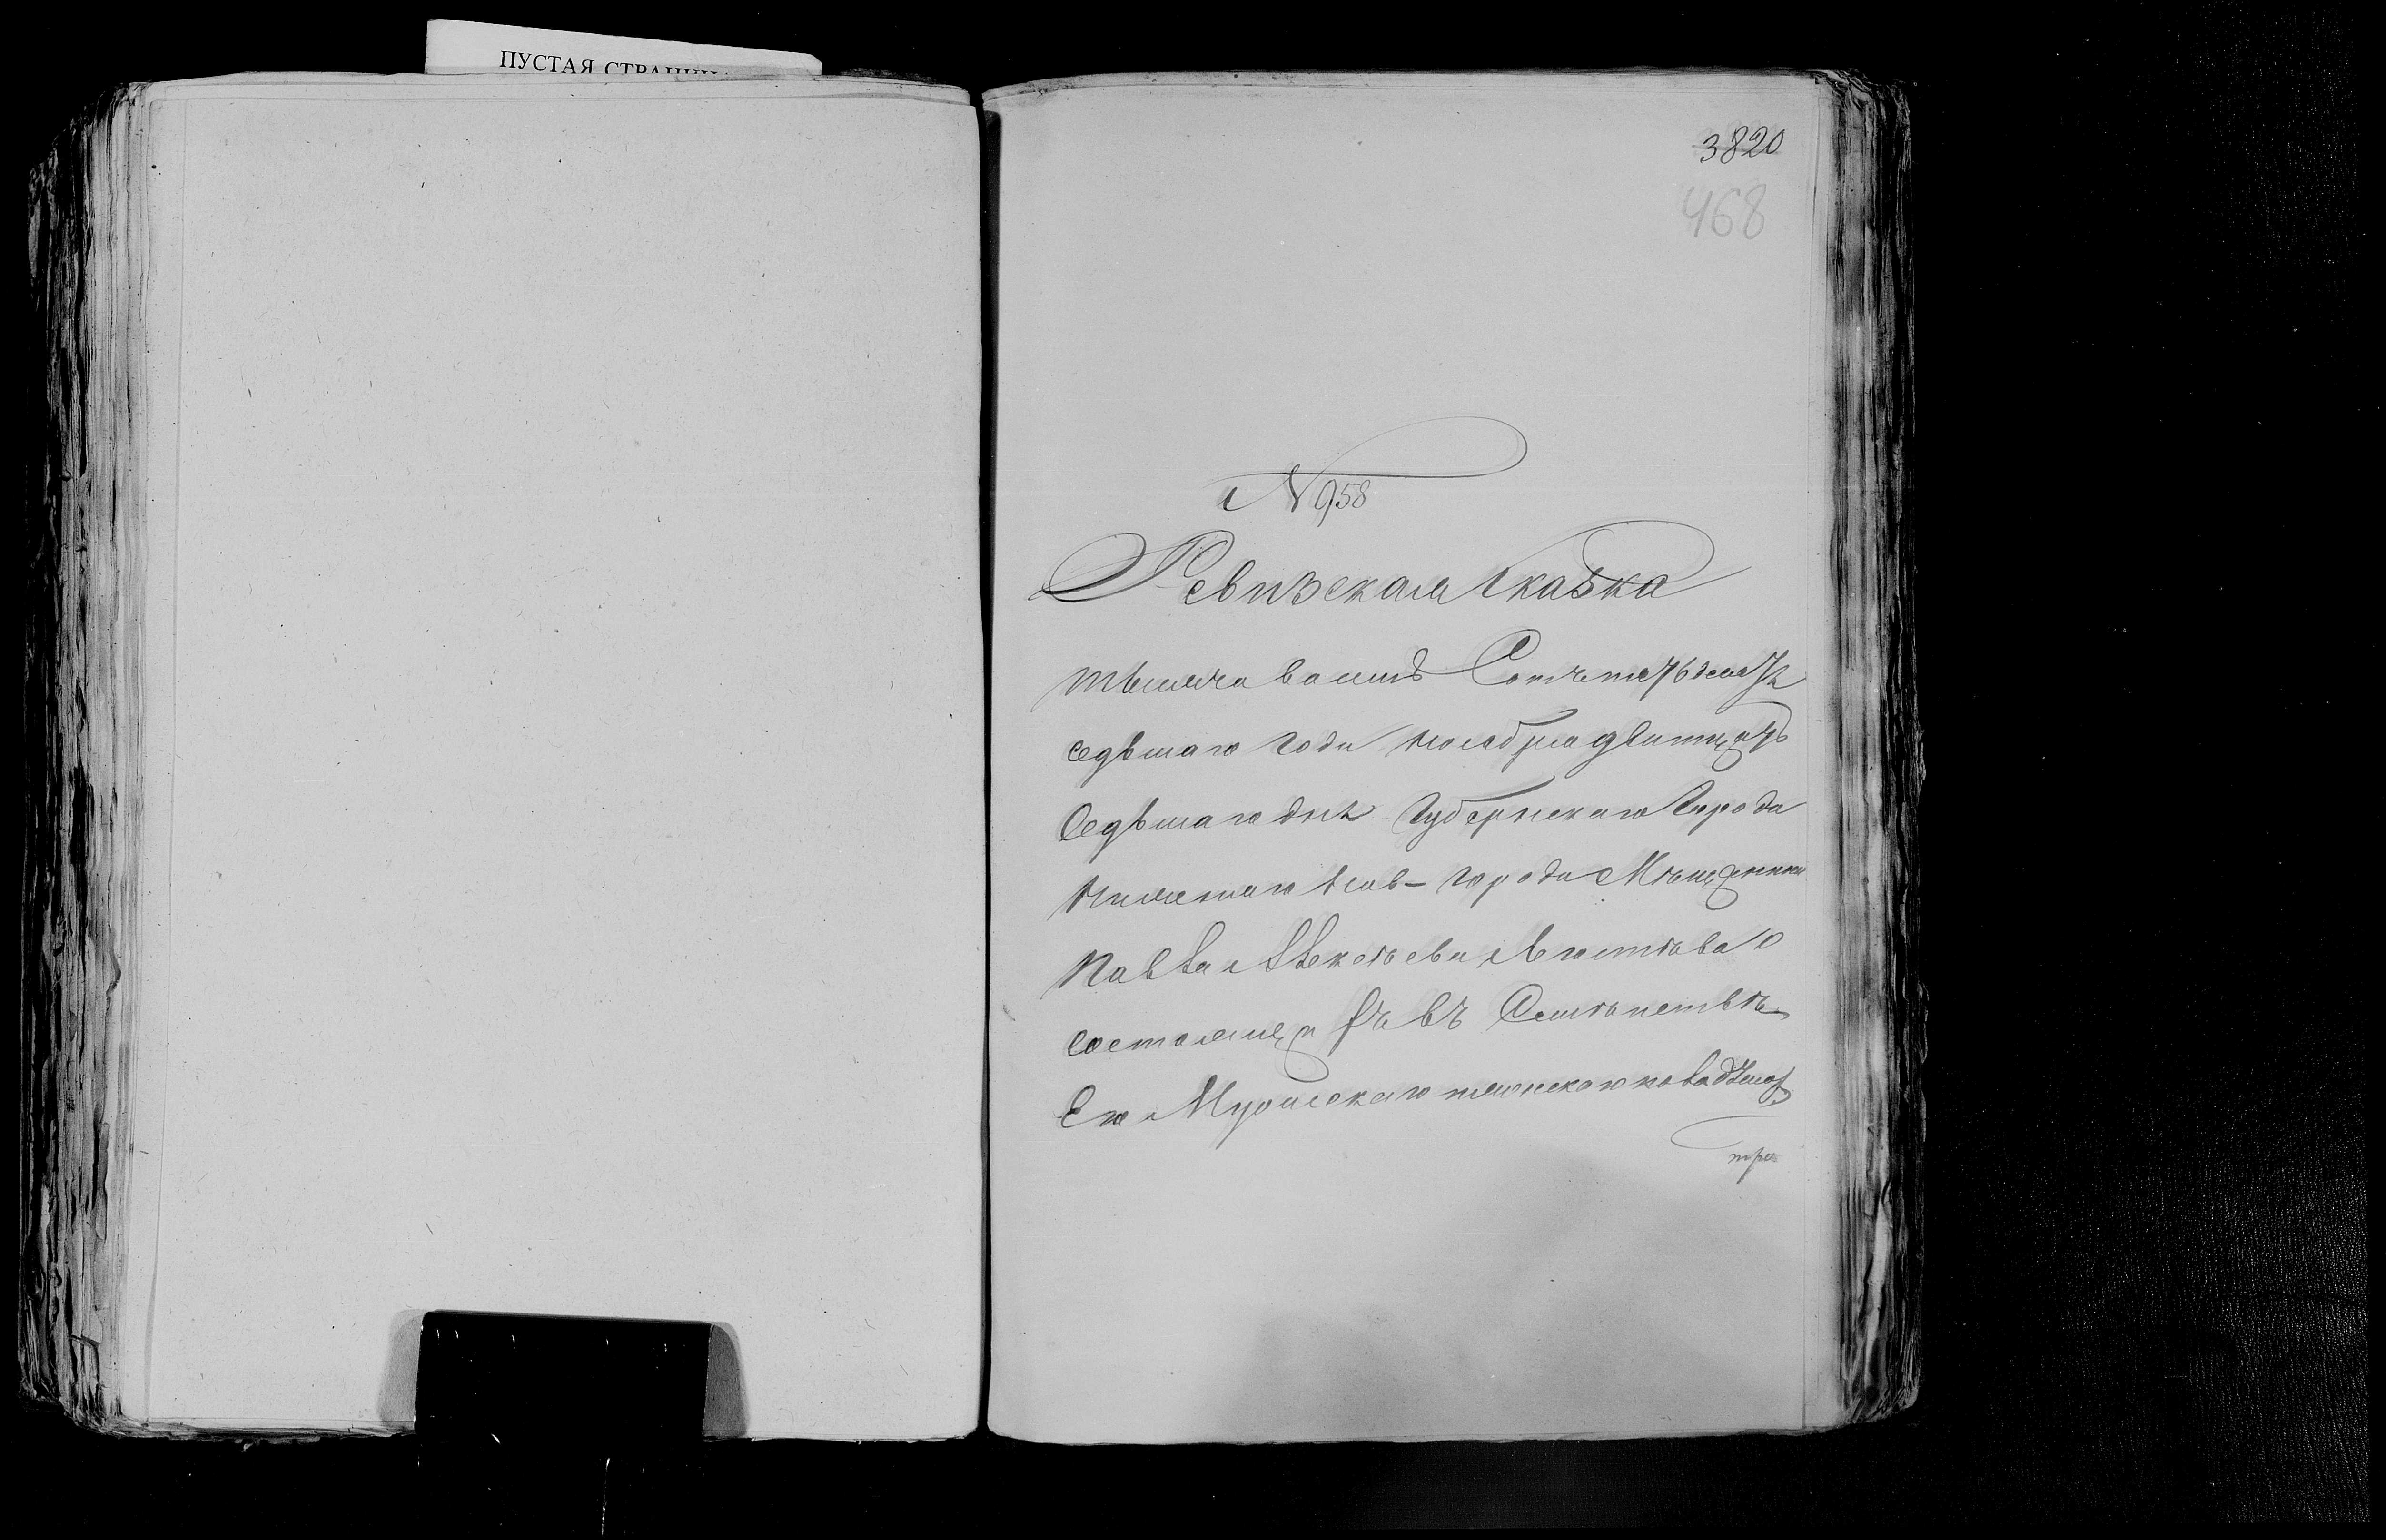 ПУСТАЯ СТРАНИЦА
3820
468
№ 958
Ревизская Сказка
тысяча восемь Сотъ пятьдесятъ
седьмаго года Ноября дватцать
Седьмаго дня Губернскаго Города
Нижняго Нов-города Мѣщанина
Павла Алексѣева
состоящихъ въ Семѣйствѣ
Его Мужскаго женскаго пола душъ